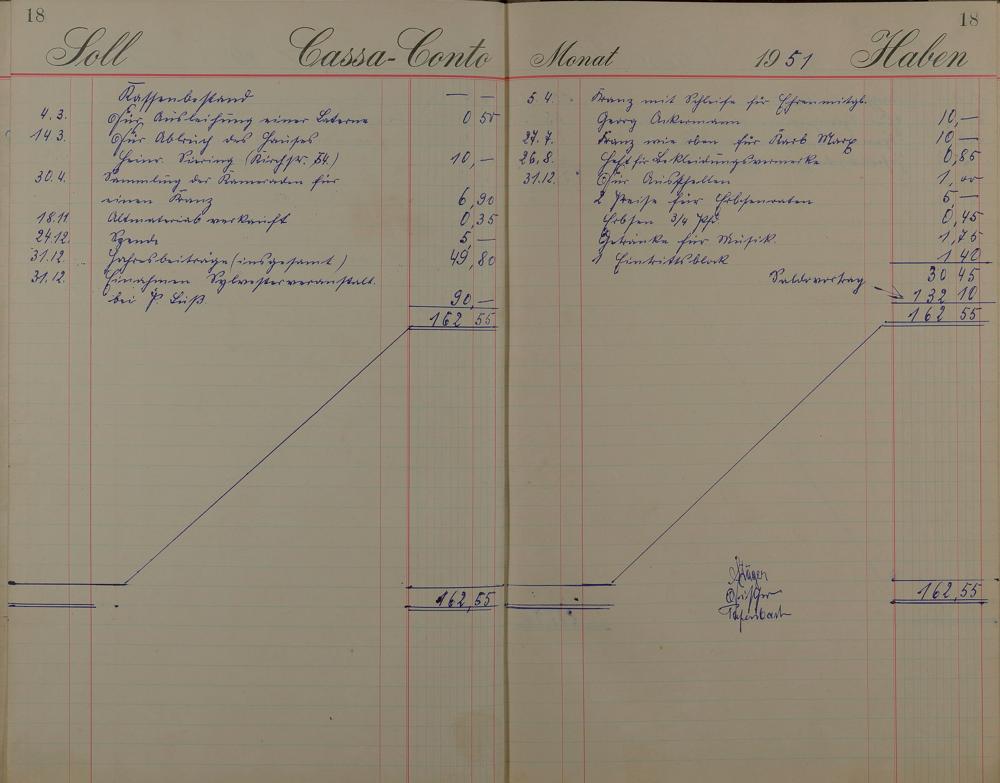 18
Soll Cassa-Conto
Kassenbestand — —
4.3. Für Ausleihung einer Laterne 0 50
14.3. Für Abbruch des Hauses
Heinr. (Kirchstr. 54.) 10,—
30.4. Sammlung der Kameraden für
einen Kranz 6,90
18.11 Altmaterial verkauft 0,35
24.12. Spende 5,—
31.12. Jahresbeiträge (insgesamt) 49,80
31.12. Einnahmen Sylvesterveranstalt.
bei P. Lüß 90,—
162 55
162,55
18
Monat 1951 Haben
5.4. Kranz mit Schleife für Ehrenmitgl.
Georg Ackermann 10,—
27.7. Kranz wie oben für Karl Marx 10 —
26.8. Heft für Bekleidungsvermerke 0,85
31.12. Für 1,00
2 Preise für Erbsenraten 5,—
Erbsen 3/4 Pfd 0,45
Getränke für Musik. 1,75
1 Eintrittsblock 1 40
30 45
Saldovortrag 132 10
162 55
162,55